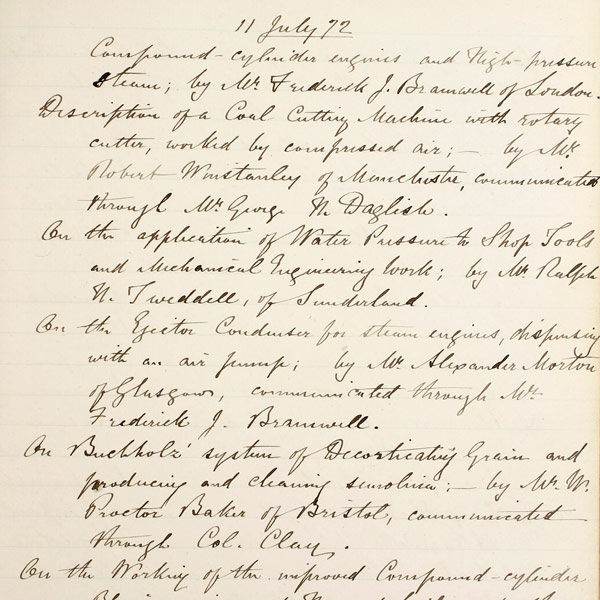 11 July 72
Compound-cylinder engines and High-pressure
steam; by Mr. Frederick J. Bramwell of London.
Description of a Coal Cutting Machine with rotary
cutter, worked by compressed air; — by Mr.
Robert Winstanley of Manchester, communicated
through Mr. George H. Daglish.
On the application of Water Pressure to Shop Tools
and Mechanical Engineering Work; by Mr. Ralph
H. Tweddell, of Sunderland.
On the Ejector Condenser for steam engines, dispensing
with an air pump; by Mr. Alexander Morton
of Glasgow, communicated through Mr.
Frederick J. Bramwell.
On Buchholz' system of Decorticating Grain and
producing and cleaning semolina; — by Mr. W.
Proctor Baker of Bristol, communicated
through Col. Clay.
On the Working of the improved Compound-cylinder